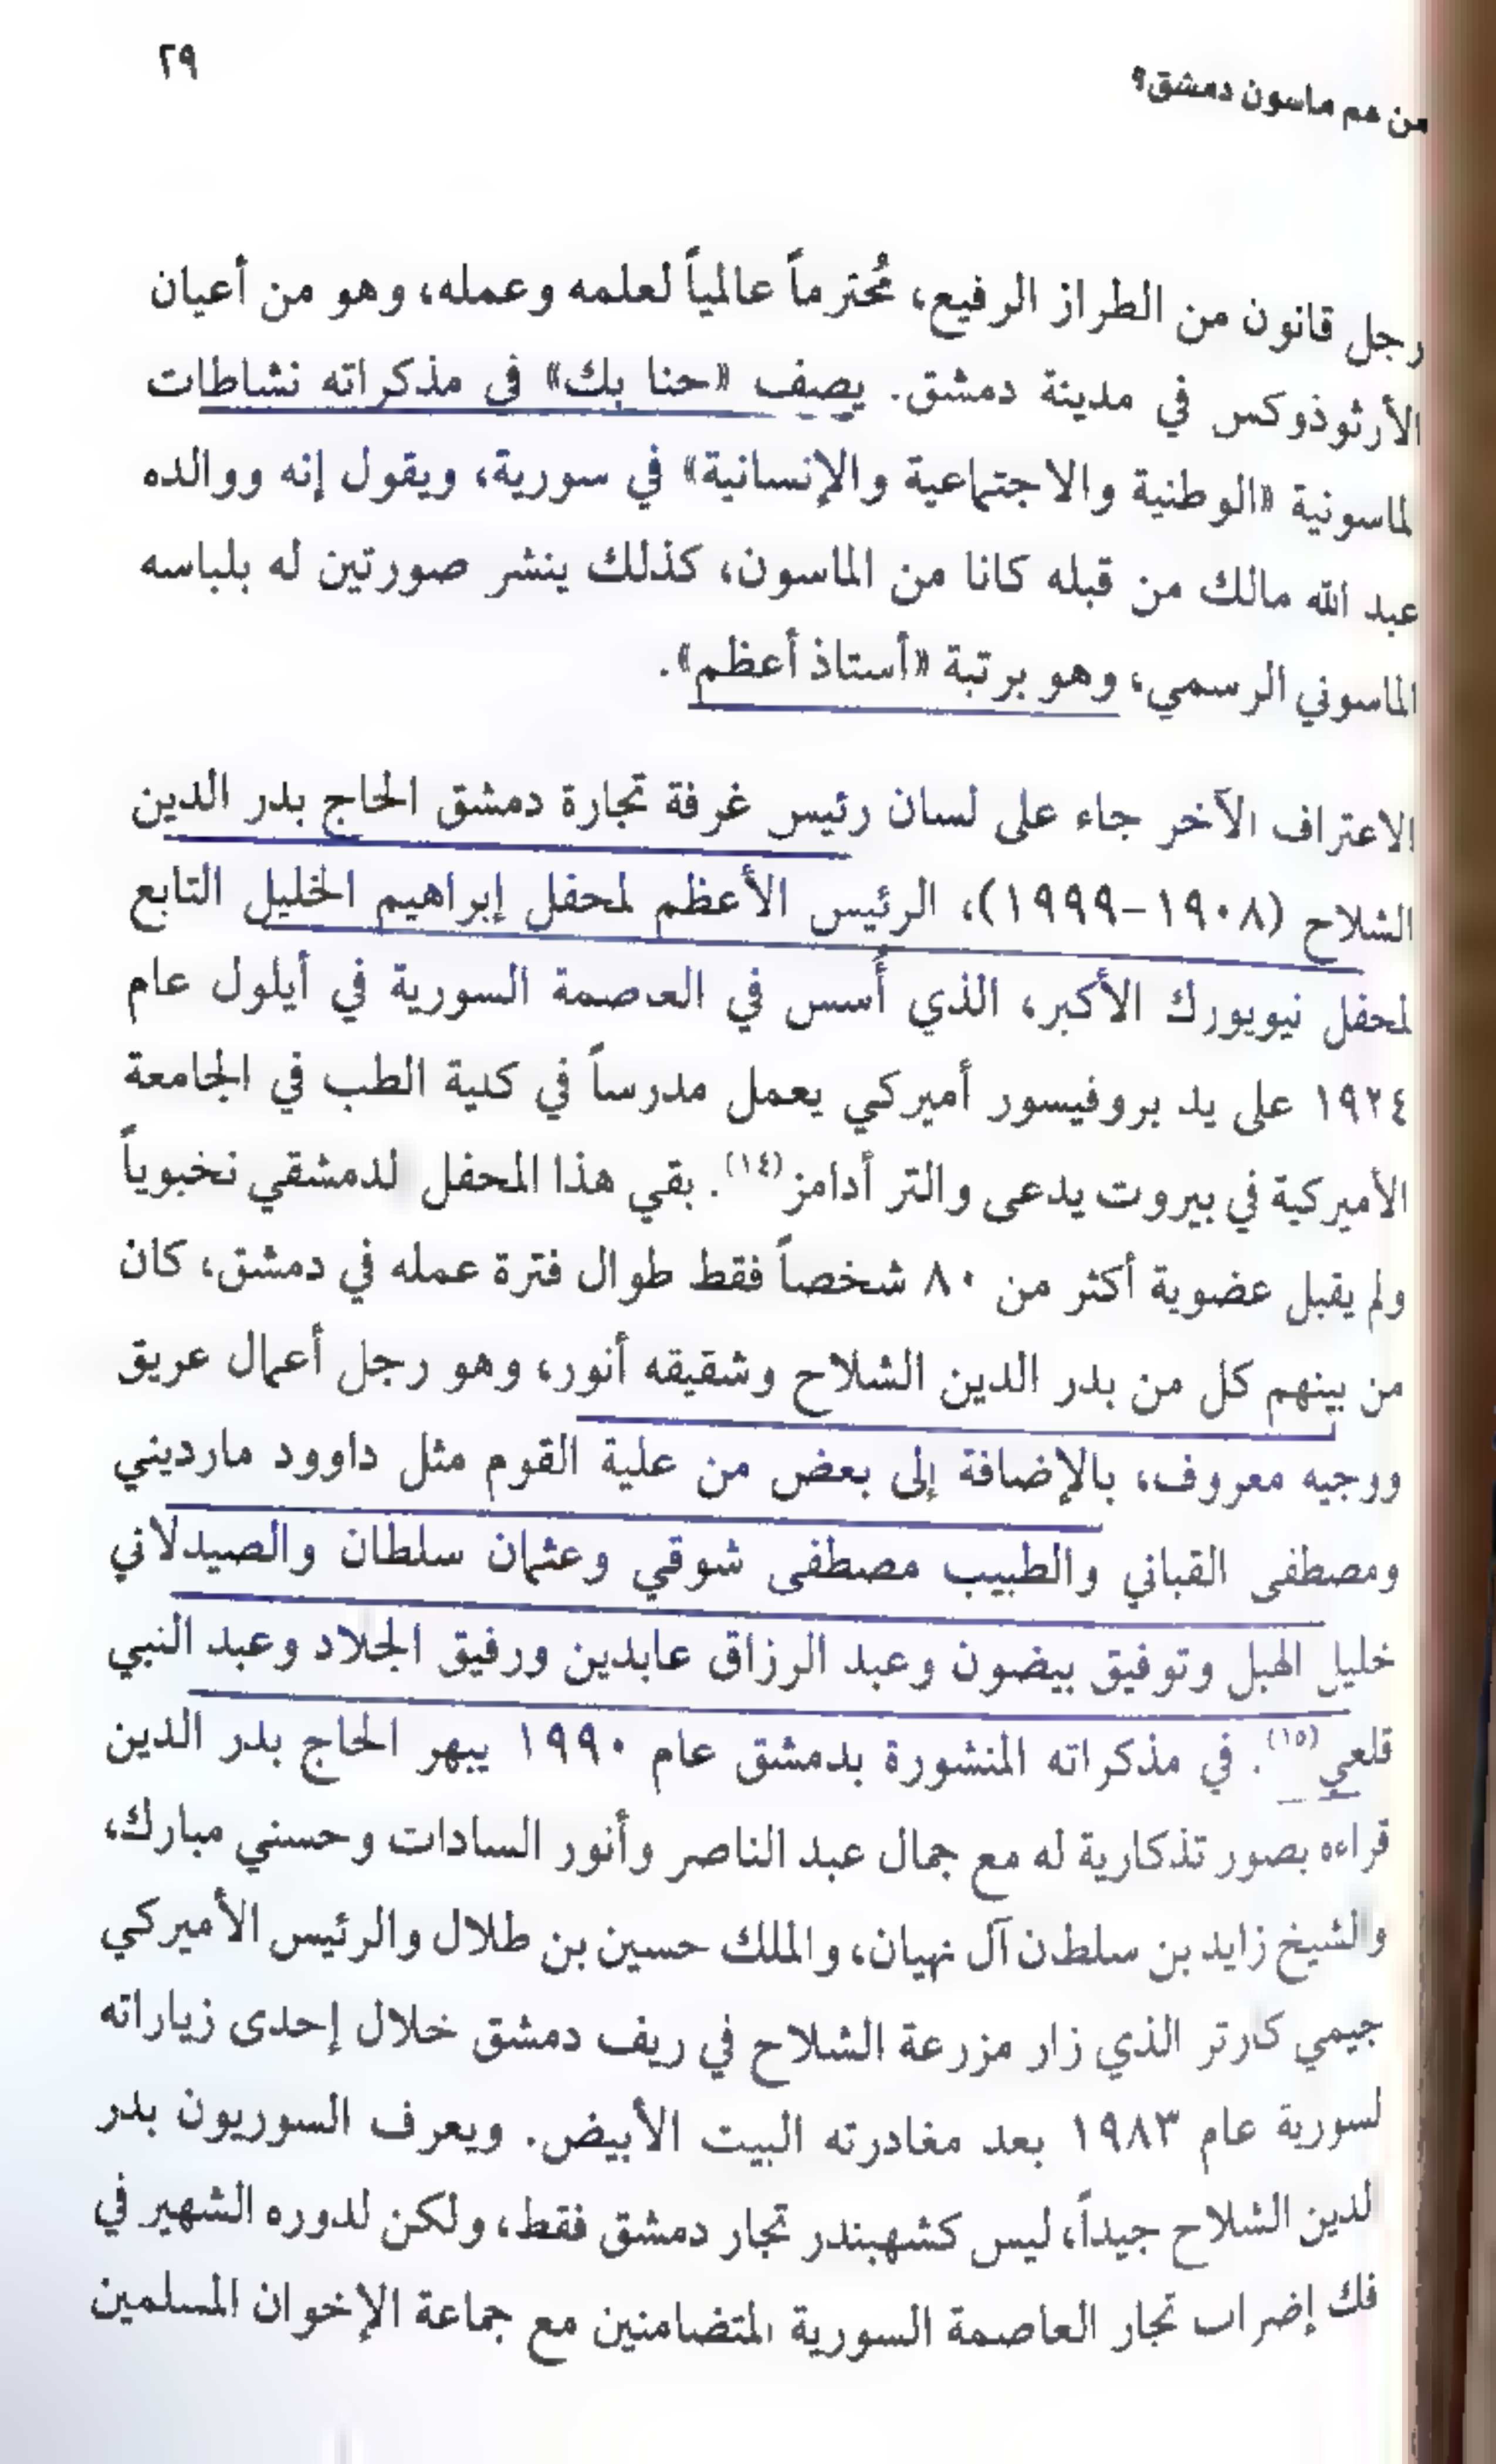 ٢٩
من هم ماسون دمشق؟
رجل قانون من الطراز الرفيع، مُحترماً عالمياً لعلمه وعمله، وهو من أعيان
الأرثوذوكس في مدينة دمشق. يصف «حنا بك» في مذكراته نشاطات
الماسونية «الوطنية والاجتماعية والإنسانية» في سورية، ويقول إنه ووالده
عبد الله مالك من قبله كانا من الماسون، كذلك ينشر صورتين له بلباسه
الماسوني الرسمي، وهو برتبة «أستاذ أعظم».
الاعتراف الآخر جاء على لسان رئيس غرفة تجارة دمشق الحاج بدر الدين
الشلاح (١٩٠٨-١٩٩٩)، الرئيس الأعظم لمحفل إبراهيم الخليل التابع
لمحفل نيويورك الأكبر، الذي أُسس في العاصمة السورية في أيلول عام
١٩٢٤ على يد بروفيسور أميركي يعمل مدرساً في كلية الطب في الجامعة
الأميركية في بيروت يدعى والتر أدامز(١٤). بقي هذا المحفل الدمشقي نخبوياً
ولم يقبل عضوية أكثر من ٨٠ شخصاً فقط طوال فترة عمله في دمشق، كان
من بينهم كل من بدر الدين الشلاح وشقيقه أنور، وهو رجل أعمال عريق
ووجيه معروف، بالإضافة إلى بعض من علية القوم مثل داوود مارديني
ومصطفى القباني والطبيب مصطفى شوقي وعثمان سلطان والصيدلاني
خليل الهبل وتوفيق بيضون وعبد الرزاق عابدين ورفيق الجلاد وعبد النبي
قلعي(١٥). في مذكراته المنشورة بدمشق عام ١٩٩٠ يبهر الحاج بدر الدين
قراءه بصور تذكارية له مع جمال عبد الناصر وأنور السادات وحسني مبارك،
والشيخ زايد بن سلطان آل نهيان، والملك حسين بن طلال والرئيس الأميركي
جيمي كارتر الذي زار مزرعة الشلاح في ريف دمشق خلال إحدى زياراته
لسورية عام ١٩٨٣ بعد مغادرته البيت الأبيض. ويعرف السوريون بدر
الدين الشلاح جيداً، ليس كشهبندر تجار دمشق فقط، ولكن لدوره الشهير في
فك إضراب تجار العاصمة السورية المتضامنين مع جماعة الإخوان المسلمين